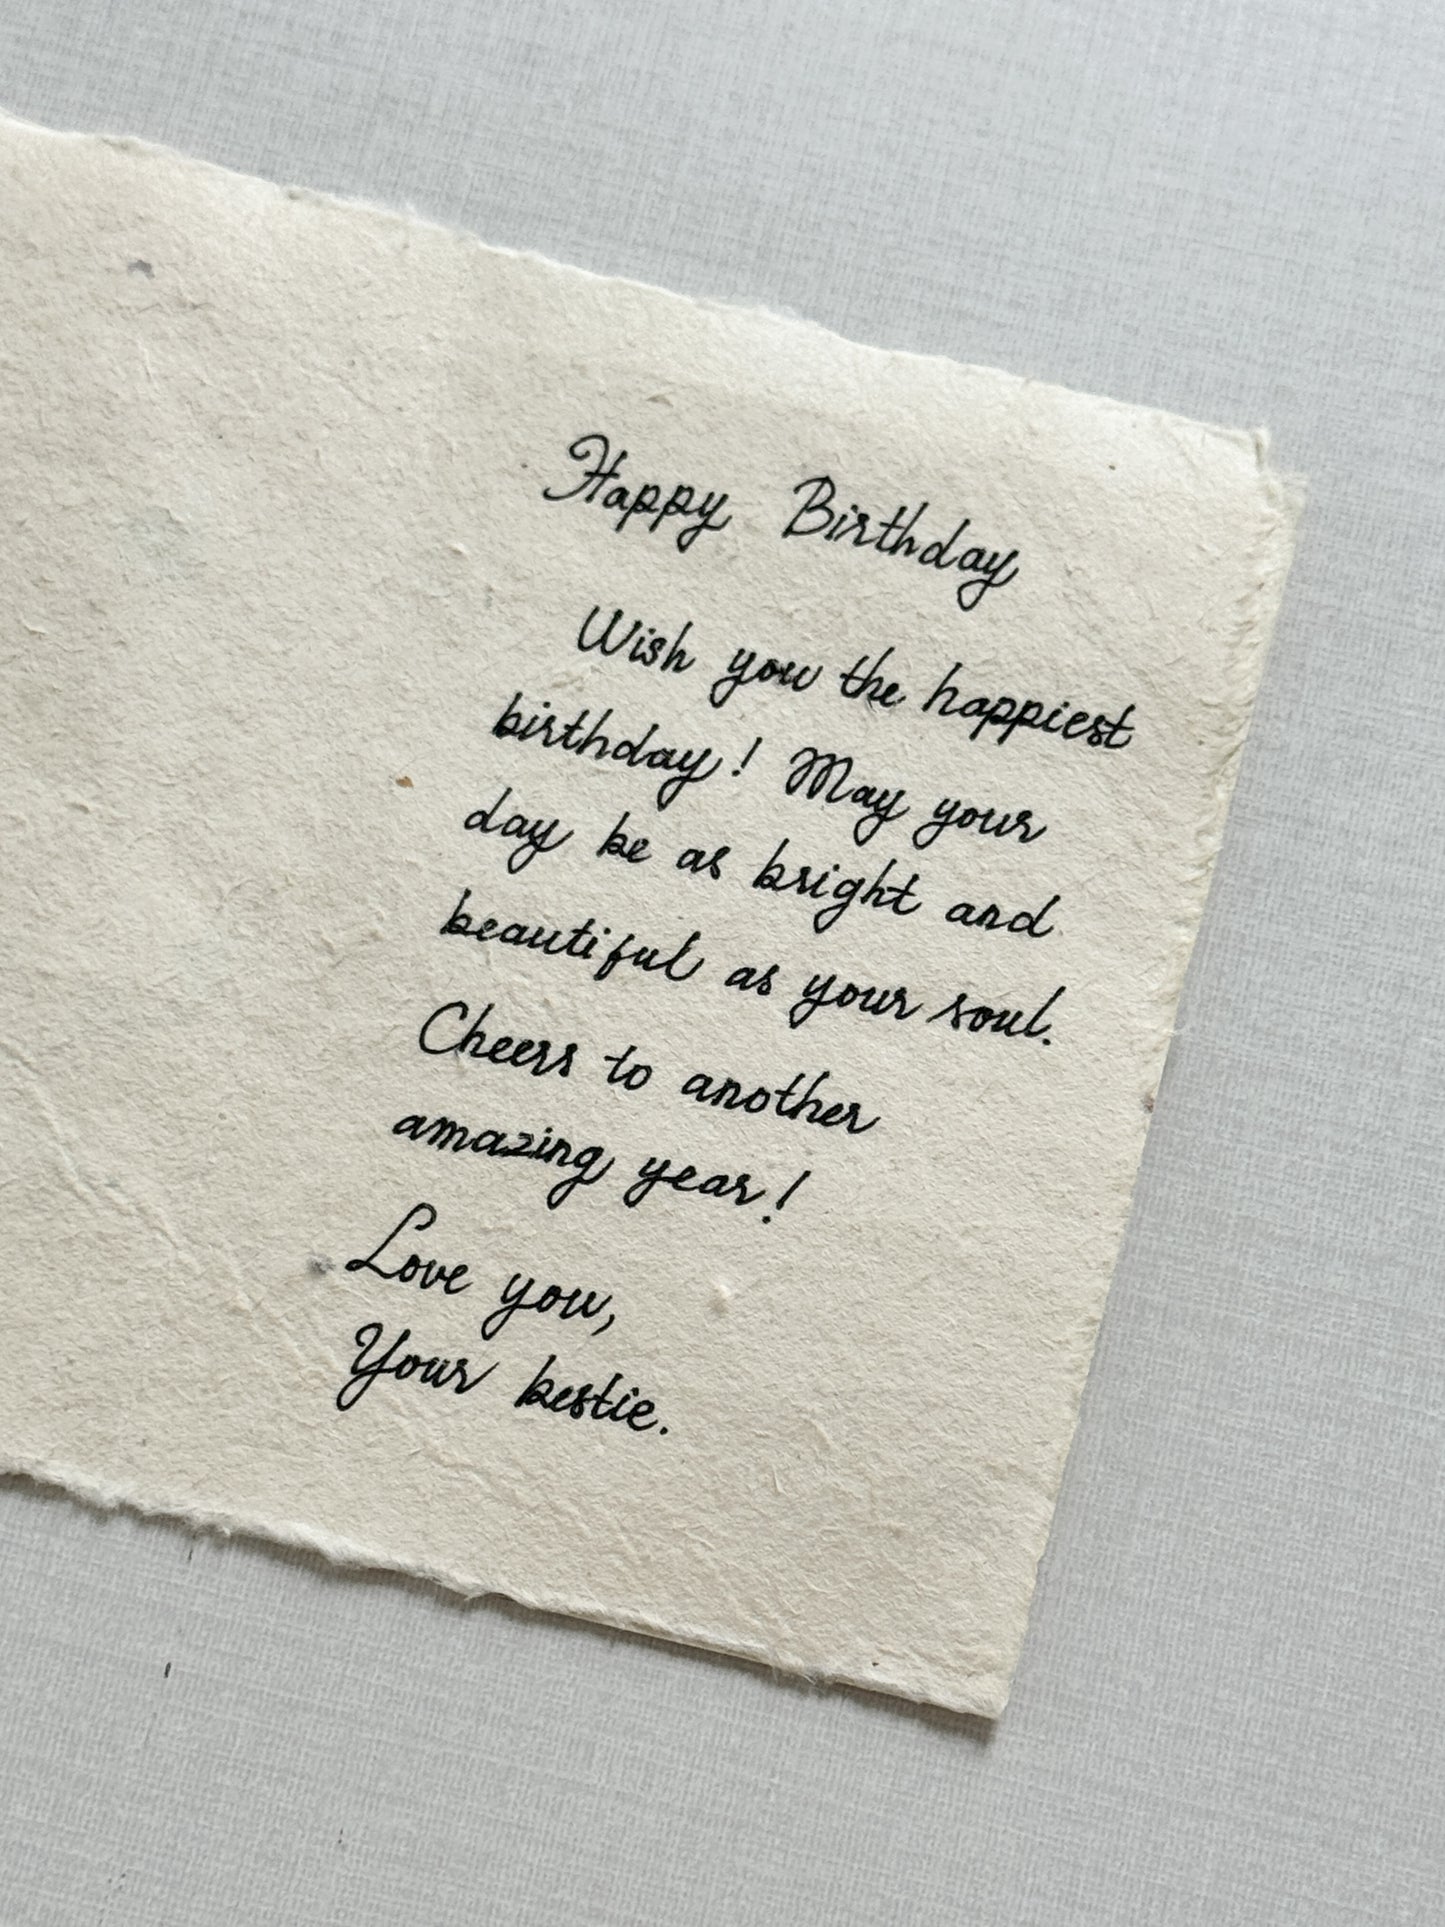 Happy Birthday
Wish you the happiest
birthday! May your
day be as bright and
beautiful as your soul.
Cheers to another
amazing year!
Love you,
Your bestie.